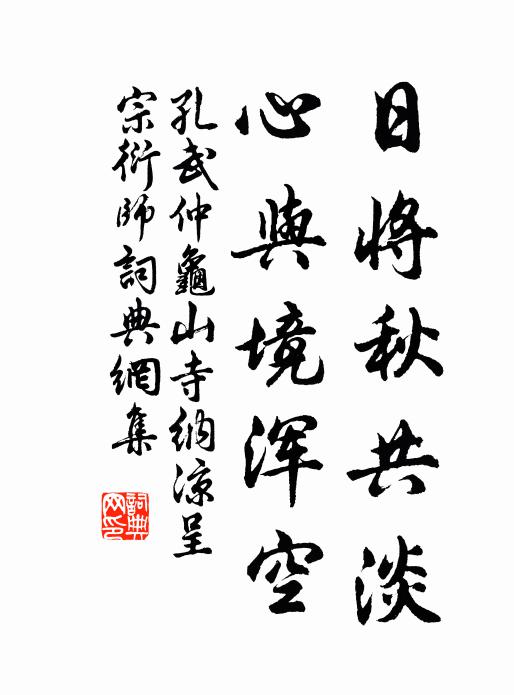 日將秋共淡
心與境浑空
孔武仲龜山寺納凉呈
宗衍師詞典網集
詞典
网印